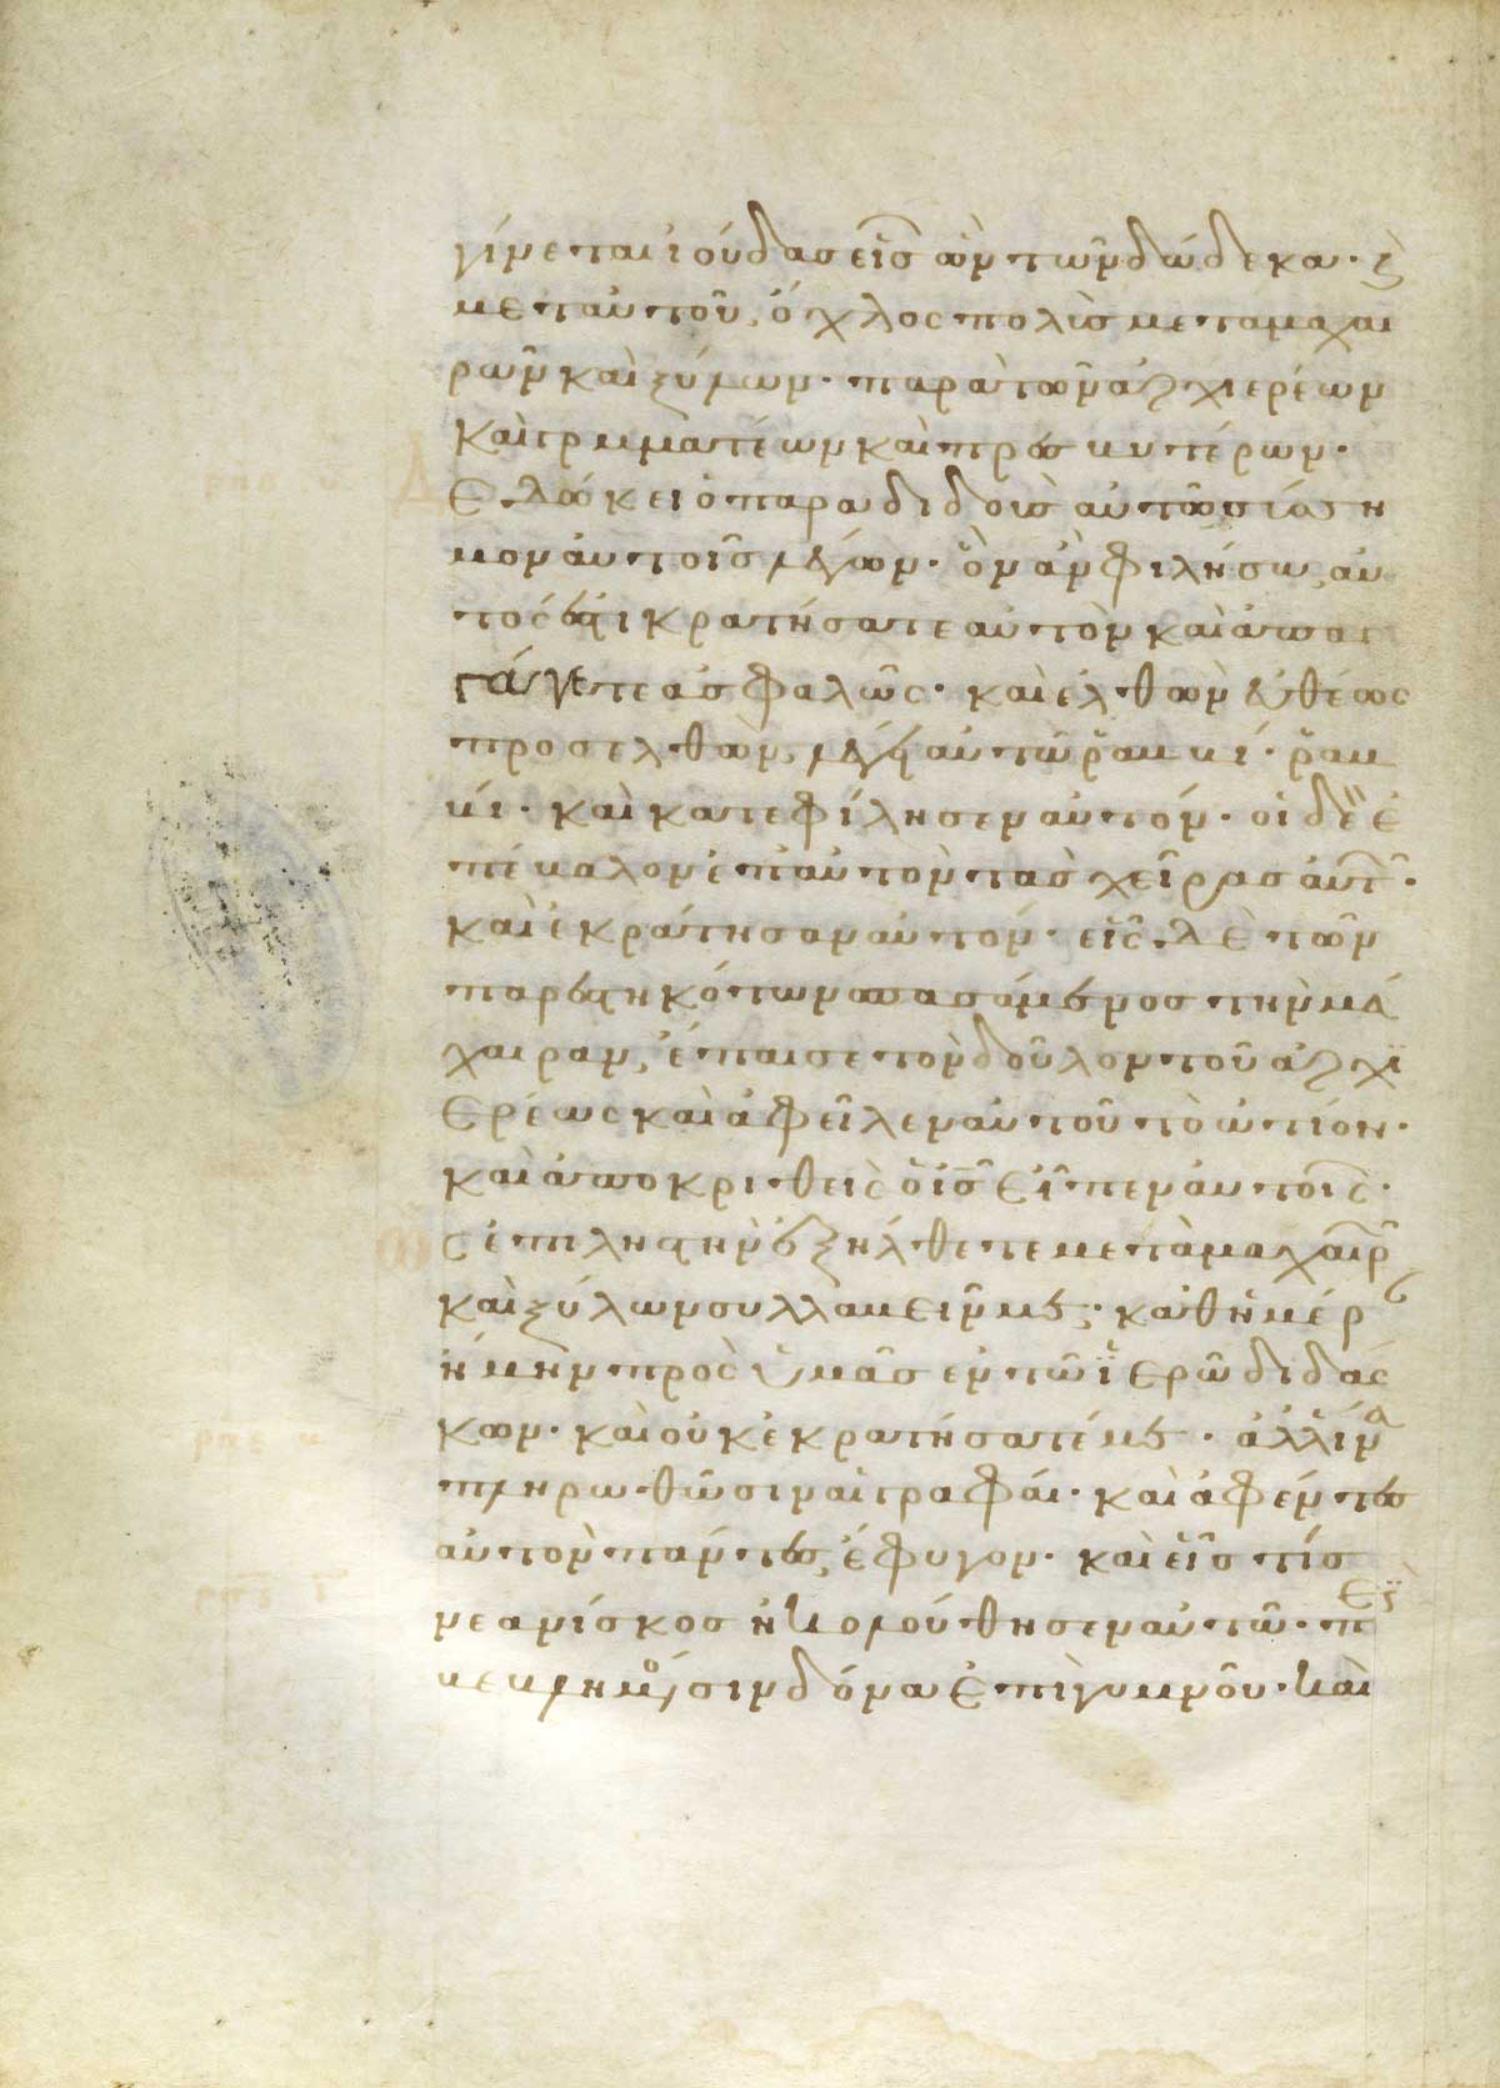 γίνεται ἰούδας εἷς ὢν τῶν δώδεκα· κ(αὶ)
μετ αὐτοῦ, ὄχλος πολὺς μετα μαχαι
ρῶν καὶ ξύλων· παρὰ τῶν ἀρχιερέων
καὶ γραμματέων καὶ πρεσβυτέρων·
Δεδώκει ὁ παραδιδοὺς αὐτὸν σύσση
μον αὐτοῖς λέγων· ὃν ἂν φιλήσω, αὐ
τός ἐστι κρατήσατε αὐτὸν καὶ ἀπα
γάγετε ἀσφαλῶς· καὶ ἐλθὼν εὐθέως
προσελθὼν, λέγει αὐτῶ ῥαββί· ῥαβ
βί· καὶ κατεφίλησεν αὐτόν· οἱ δὲ ἐ
πέβαλον ἐπ αὐτὸν τὰς χεῖρας αὐτῶν·
καὶ ἐκράτησαν αὐτόν· εἷς δὲ τῶν
παρεστηκότων σπασάμενος τὴν μά
χαιραν, ἔπαισε τὸν δοῦλον τοῦ ἀρχϊ
ερέως καὶ ἀφεῖλεν αὐτοῦ τὸ ὠτίον·
καὶ ἀποκριθεὶς ὁ ἰς εἶπεν αὐτοῖς·
ὡς ἐπὶ ληστὴν ἐξήλθετε μετὰ μαχαιρ(ῶν)
καὶ ξύλων συλλαβεῖν με· καθ ἡμέρ(αν)
ἤμην πρὸς ὑμᾶς ἐν τῶ ϊερῶ διδάσ
κων· καὶ οὐκ ἐκρατήσατέ με· ἀλλ ἵνα
πληρωθῶσιν αἱ γραφαί· καὶ ἀφέντες
αὐτὸν πάντες, ἔφυγον· καὶ εἷς τίς
νεανίσκος ἠκολούθησεν αὐτῶ· περι
βεβλημένος σινδόνα ἐπὶ γυμνοῦ· καὶ